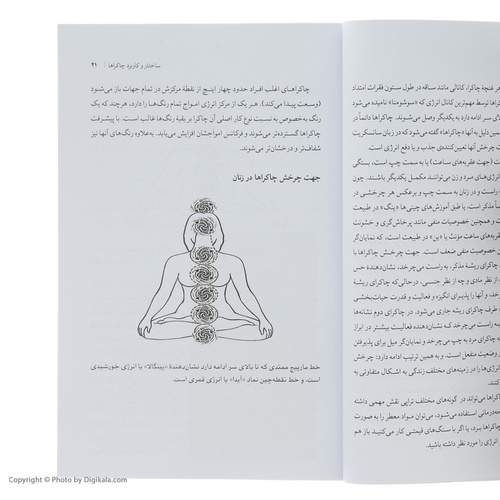 ساختار و کاربرد چاکراها
۲۱
چاکراهای اغلب افراد حدود چهار اینچ از نقطهٔ مرکزش در تمام جهات باز می‌شود
(وسعت پیدا می‌کند). هر یک از مرکز انرژی امواج تمام رنگ‌ها را دارد، هرچند که یک
رنگ به‌خصوص به نسبت نوع کار اصلی آن چاکرا بر بقیهٔ رنگ‌ها غالب است. با پیشرفت
چاکراها گسترده‌تر می‌شوند و فرکانس امواجشان افزایش می‌یابد. به‌علاوه رنگ‌های آنها نیز
شفاف‌تر و درخشان‌تر می‌شوند.
جهت چرخش چاکراها در زنان
خط مارپیچ ممتدی که تا بالای سر ادامه دارد نشان‌دهندهٔ «پینگالا» یا انرژی خورشیدی
است، و خط نقطه‌چین نماد «آیدا» یا انرژی قمری است.
هر غنچهٔ چاکرا، کانالی مانند ساقه در طول ستون فقرات امتداد
چاکراها توسط مهم‌ترین کانال انرژی که «سوشومنا» نامیده می‌شود
بالای سر ادامه دارد به یکدیگر وصل می‌شوند. چاکراها دائماً در
همین دلیل به آنها «چاکراها» گفته می‌شود که در زبان سانسکریت
چرخش آنها تعیین‌کننده‌ی جذب و یا دفع انرژی است.
(جهت عقربه‌های ساعت) یا به سمت چپ است، بستگی
انرژی‌های مرد و زن می‌توانند مکمل یکدیگر باشند. چون
است و در زنان به سمت چپ و برعکس هر چرخشی در
مذکر است، یا طبق آموزش‌های چینی‌ها «ینگ» در طبیعت
و همچنین خصوصیات منفی مانند پرخاش‌گری و خشونت
عقربه‌های ساعت مؤنث یا «ین» در طبیعت است، که نمایان‌گر
خصوصیت منفی ضعف است. جهت چرخش چاکراها با
چاکرای ریشهٔ مذکر، به راست می‌چرخد، نشان‌دهنده حس
از نظر مادی و چه از نظر جنسی، درحالی‌که چاکرای ریشهٔ
و آنها را پذیرای انگیزه و فعالیت و قدرت حیات‌بخشی
طرف چاکرای ریشه جاری می‌شود. در چاکرای دوم نشانه‌ها
راست می‌چرخد که نشان‌دهنده فعالیت بیشتر در ابراز
چاکرای مرد به چپ می‌چرخد و نمایان‌گر میل برای پذیرفتن
وضعیت منفعل است. و به همین ترتیب ادامه دارد: چرخش
انرژی‌ها را در زمینه‌های مختلف زندگی به اشکال متفاوتی به
کنند.
چاکراها می‌تواند در گونه‌های مختلف تراپی نقش مهمی داشته
رایحه‌درمانی استفاده می‌شود، می‌توان مواد معطر را به صورت
چاکراها برد، یا اگر با سنگ‌های قیمتی کار می‌کنید باز هم
انرژی را مورد نظر داشته باشید.
Copyright © Photo by Digikala.com